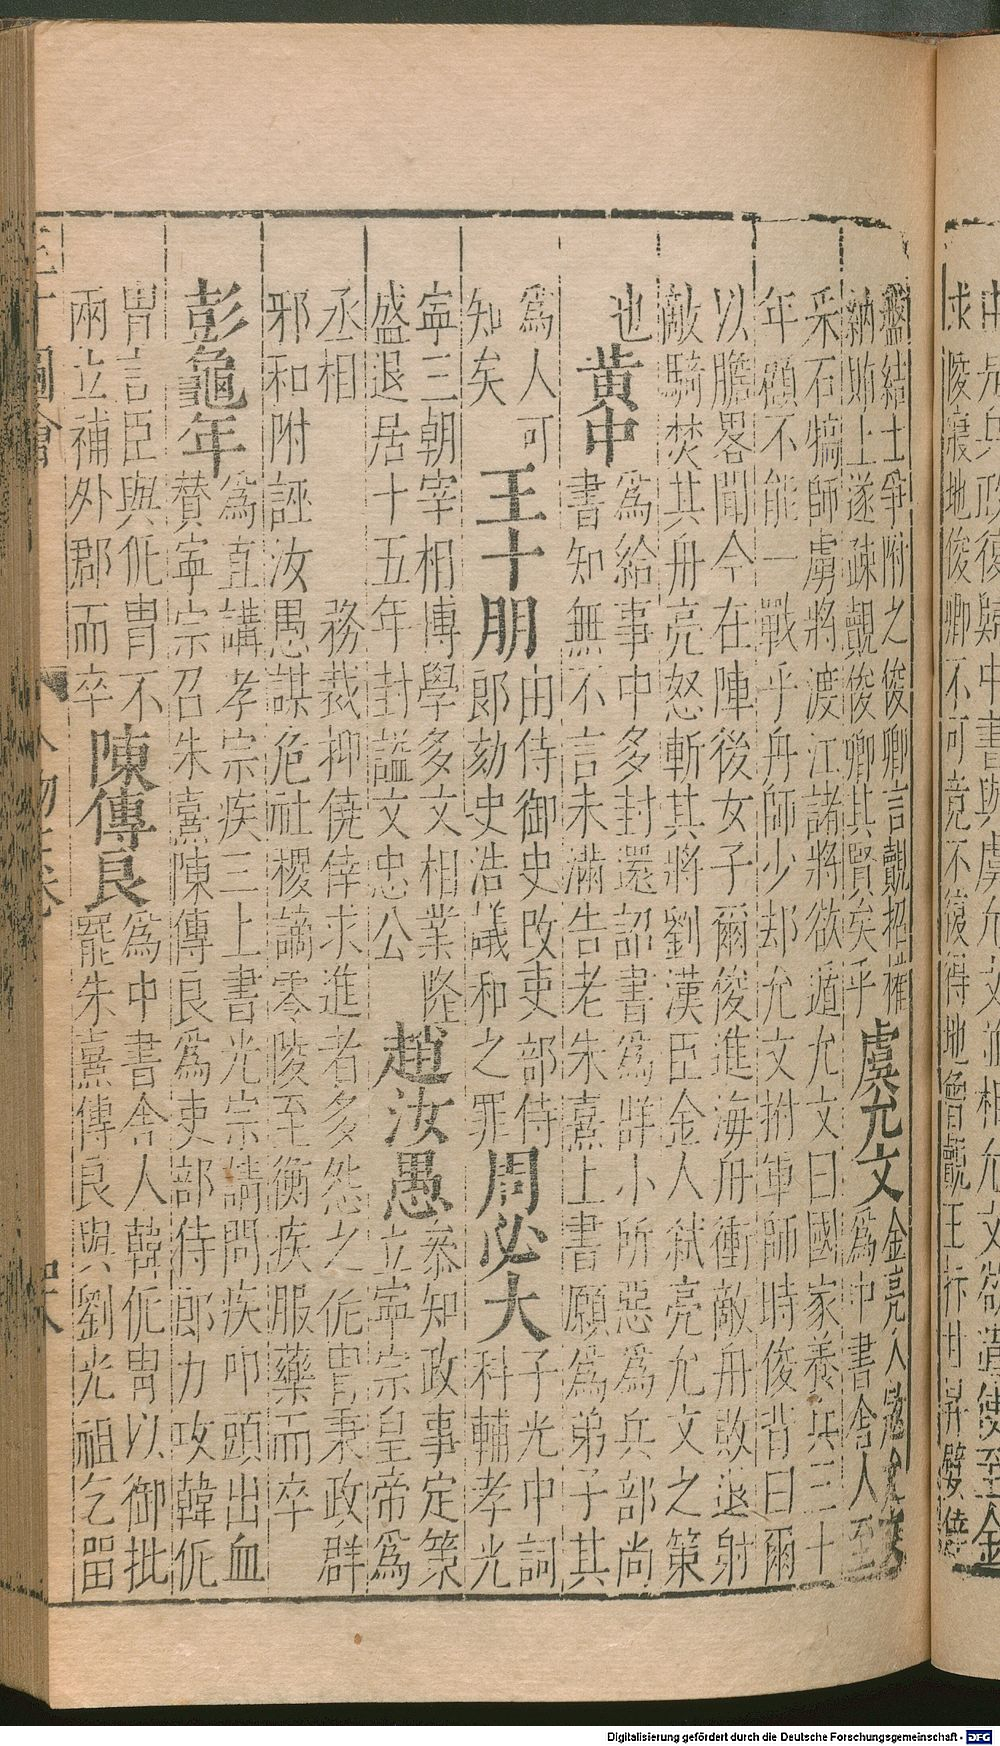 盤結士爭附之俊卿言覿招權
納賄上遂疎覿俊卿其賢矣乎
虞允文
金亮入寇允文
爲中書舍人至
采石犒師虜將渡江諸將欲遁允文曰國家養兵三十
年顧不能一戰乎舟師少却允文拊軍師時俊背曰爾
以膽畧聞今在陣後女子爾俊進海舟衝敵舟敗退射
敵騎焚其舟亮怒斬其將劉漢臣金人弒亮允文之策
也
黄中
爲給事中多封還詔書爲群小所惡爲兵部尚
書知無不言未滿告老朱熹上書願爲弟子其
爲人可
知矣
王十朋
由侍御史改吏部侍
郎劾史浩議和之罪
周必大
子光中詞
科輔孝光
寧三朝宰相博學多文相業隆
盛退居十五年封謚文忠公
趙汝愚
叅知政事定策
立寧宗皇帝爲
丞相
務裁抑僥倖求進者多怨之侂胄秉政群
邪和附誣汝愚謀危社稷謫零陵至衡疾服藥而卒
彭龜年
爲直講孝宗疾三上書光宗請問疾叩頭出血
賛寧宗召朱熹陳傳良爲吏部侍郎力攻韓侂
胄言臣與侂胄不
兩立補外郡而卒
陳傳良
爲中書舍人韓侂胄以御批
罷朱熹傳良與劉光祖乞留